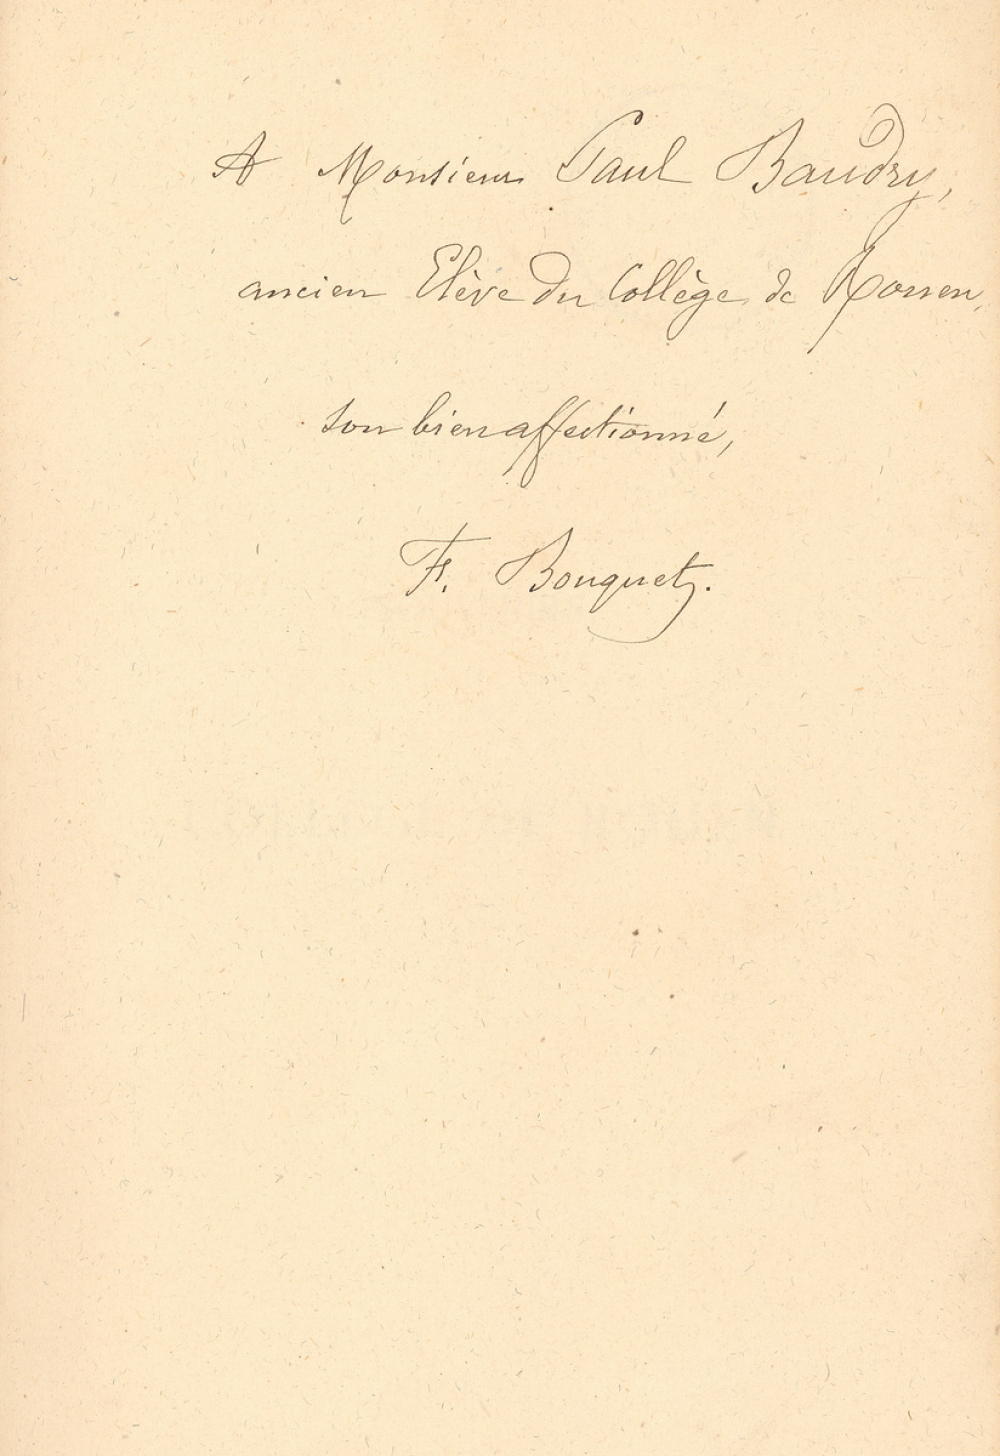 A Monsieur Paul Baudry,
ancien Elève du Collège de Rouen,
son bien affectionné,
F. Bouquet.